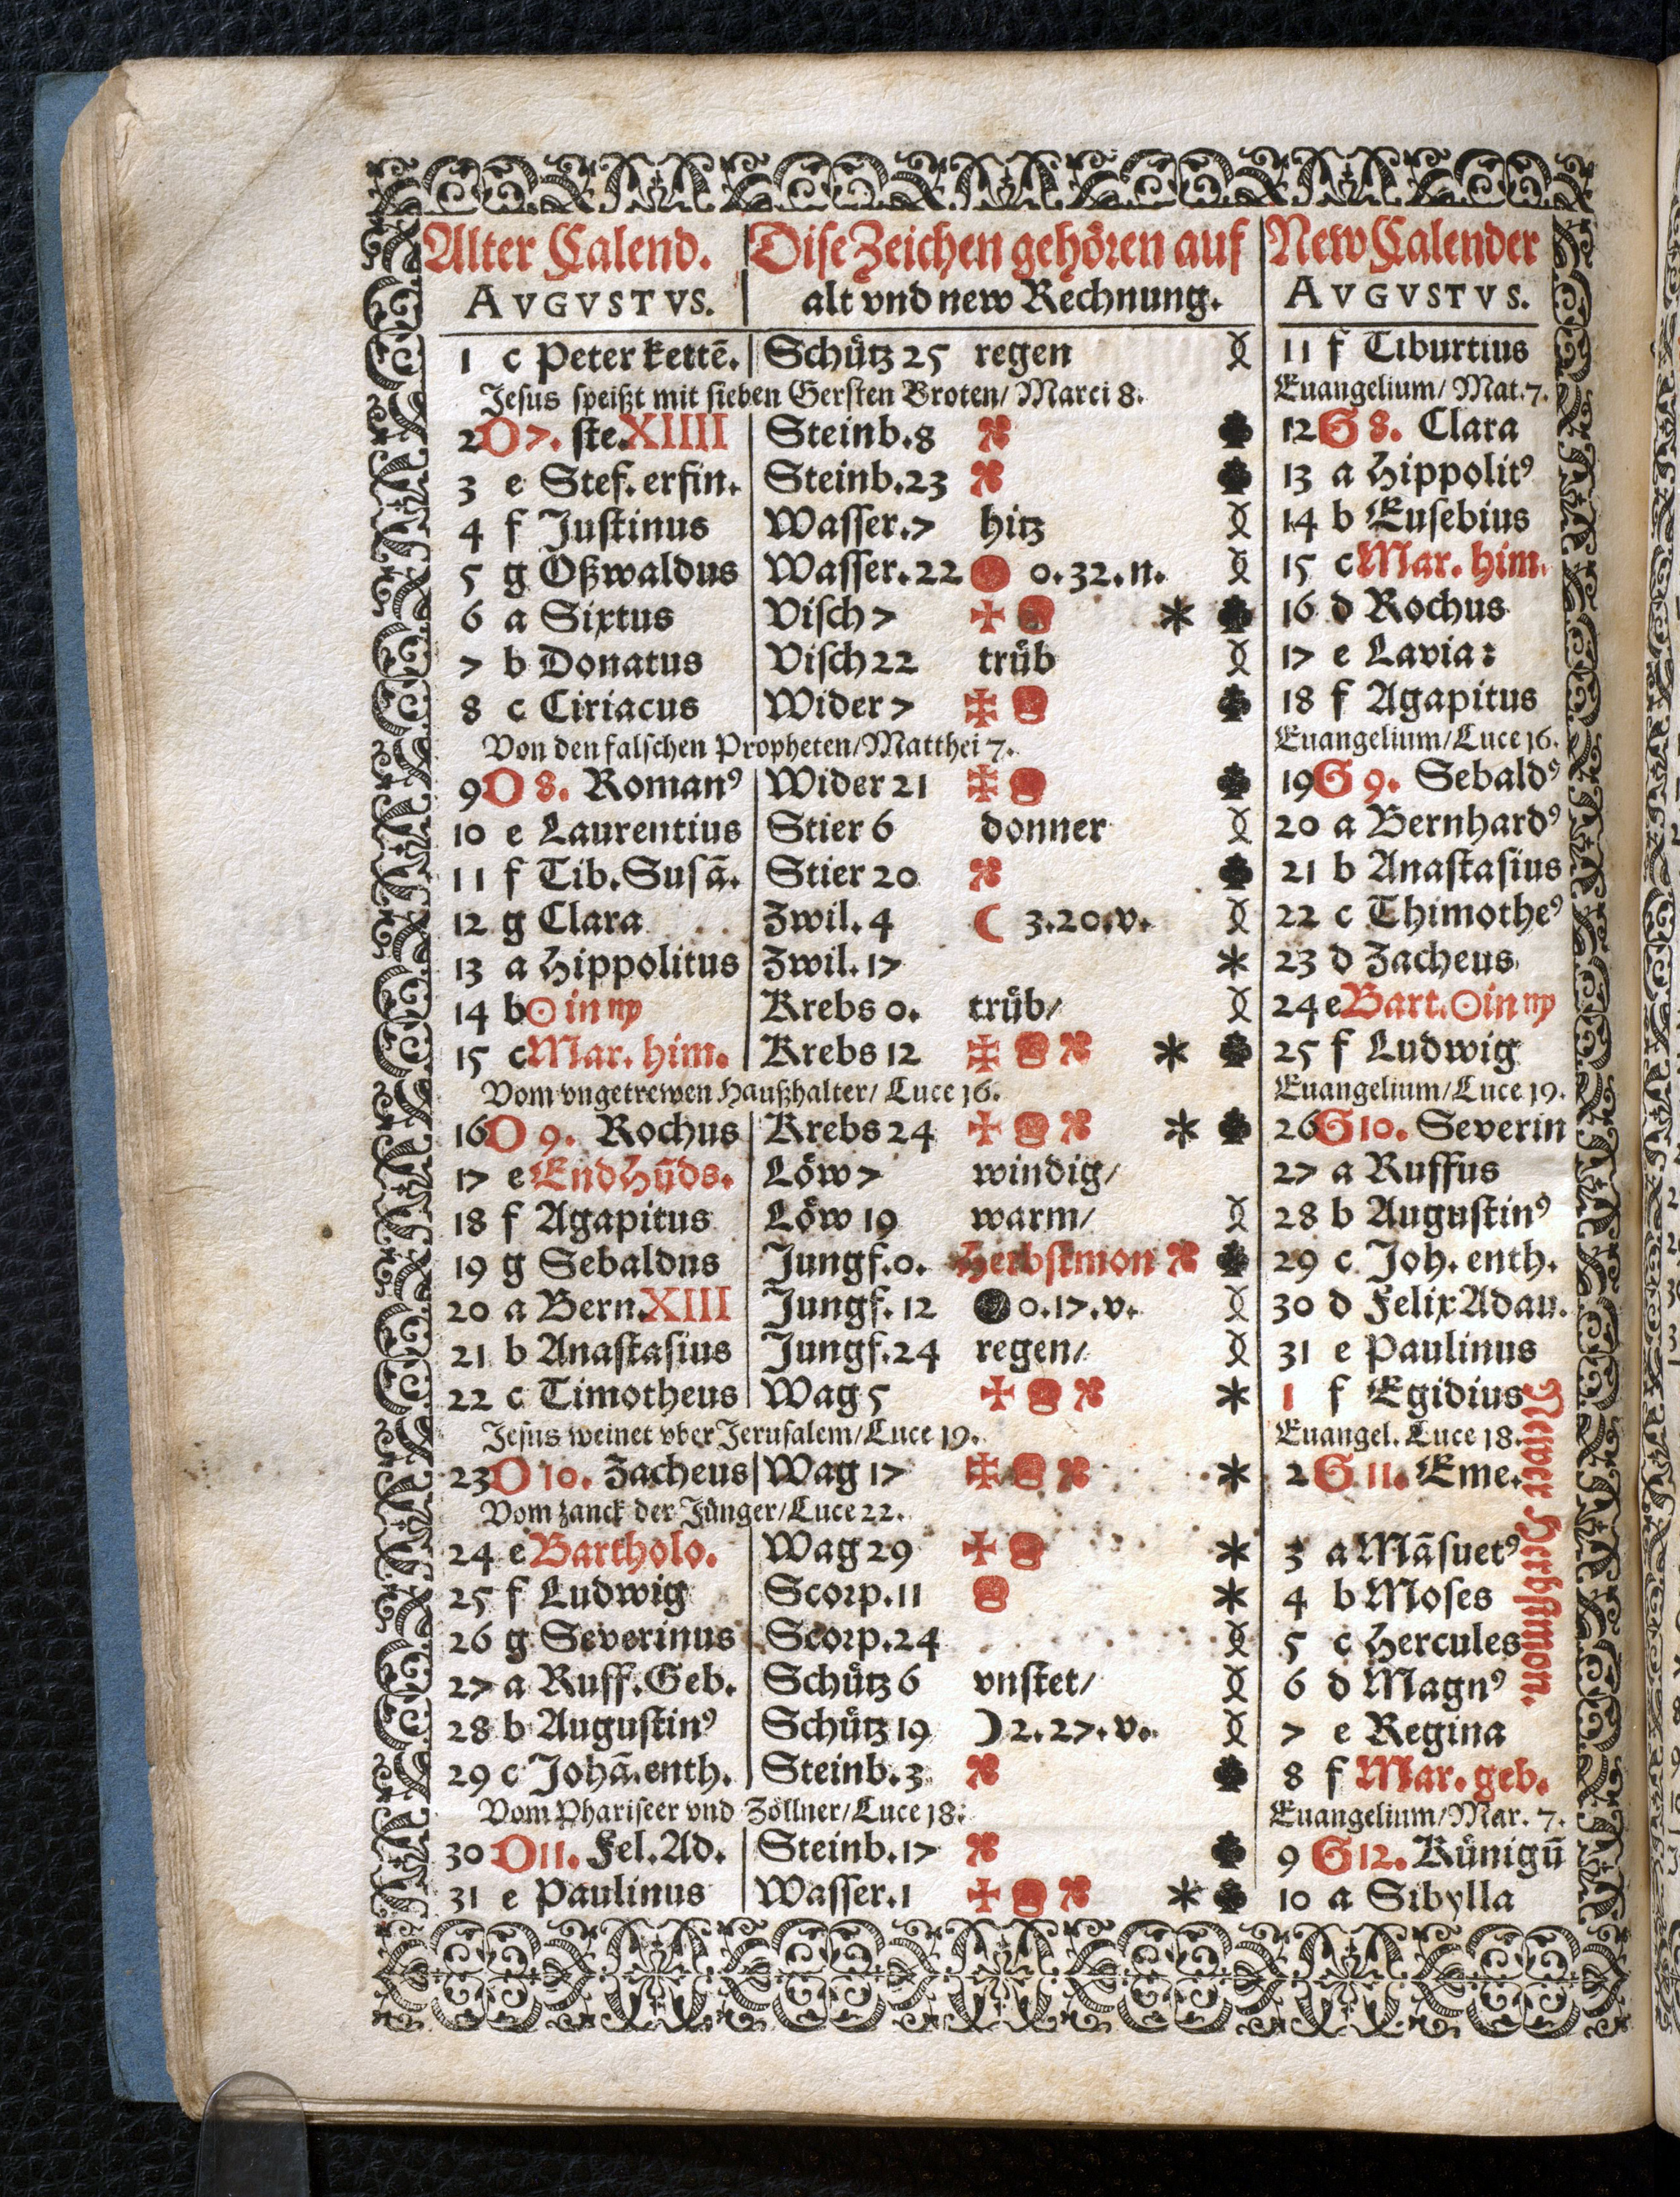 Alter Calend. Dise Zeichen gehören auf New Calender
AVGVSTVS. alt vnd new Rechnung. AVGVSTVS.
1 c Peter kettē. Schütz 25 regen 11 f Tiburtius
Jesus speißt mit sieben Gersten Broten/ Marci 8. Euangelium/ Mat. 7.
2 O 7. ste. XIIII Steinb. 8 12 G 8. Clara
3 e Stef. erfin. Steinb. 23 13 a Hippolitꝰ
4 f Justinus Wasser. 7 hitz 14 b Eusebius
5 g Oßwaldus Wasser. 22 0. 32. n. 15 c Mar. him.
6 a Sixtus Visch 7 16 d Rochus
7 b Donatus Visch 22 trüb 17 e Lavia:
8 c Ciriacus Wider 7 18 f Agapitus
Von den falschen Propheten/ Matthei 7. Euangelium/ Luce 16.
9 O 8. Romanꝰ Wider 21 19 G 9. Sebaldꝰ
10 e Laurentius Stier 6 donner 20 a Bernhardꝰ
11 f Tib. Susā. Stier 20 21 b Anastasius
12 g Clara Zwil. 4 ☾ 3. 20. v. 22 c Thimotheꝰ
13 a Hippolitus Zwil. 17 23 d Zacheus
14 b ☉ in ♍ Krebs 0. trüb/ 24 e Bart. ☉ in ♍
15 c Mar. him. Krebs 12 25 f Ludwig
Vom vngetrewen Haußhalter/ Luce 16. Euangelium/ Luce 19.
16 O 9. Rochus Krebs 24 26 G 10. Severin
17 e End Hūds. Löw 7 windig/ 27 a Ruffus
18 f Agapitus Löw 19 warm/ 28 b Augustinꝰ
19 g Sebaldus Jungf. 0. Herbstmon 29 c Joh. enth.
20 a Bern. XIII Jungf. 12 0. 17. v. 30 d Felix Adau.
21 b Anastasius Jungf. 24 regen/ 31 e Paulinus
22 c Timotheus Wag 5 1 f Egidius
Jesus weinet vber Jerusalem/ Luce 19. Euangel. Luce 18.
23 O 10. Zacheus Wag 17 2 G 11. Eme.
Vom zanck der Jünger/ Luce 22.
24 e Bartholo. Wag 29 3 a Māsuetꝰ
25 f Ludwig Scorp. 11 4 b Moses
26 g Severinus Scorp. 24 5 c Hercules
27 a Ruff. Geb. Schütz 6 vnstet/ 6 d Magnꝰ
28 b Augustinꝰ Schütz 19 ☽ 2. 27. v. 7 e Regina
29 c Johā. enth. Steinb. 3 8 f Mar. geb.
Vom Phariseer vnd Zöllner/ Luce 18. Euangelium/ Mar. 7.
30 O 11. Fel. Ad. Steinb. 17 9 G 12. Künigū
31 e Paulinus Wasser. 1 10 a Sibylla
Newer Herbstmon.